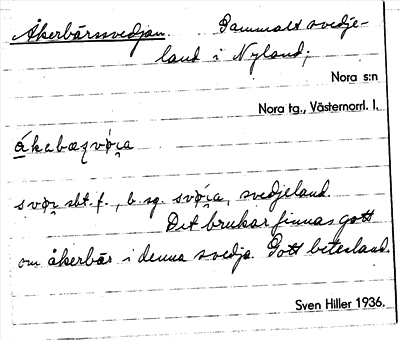 Åkerbärssvedjan. Gammalt svedje-
land i Nyland;
Nora s:n
Nora tg., Västernorrl. l.
svør sbt. f., b. sg. svøra, svedjeland.
Det brukar finnas gott
om åkerbär i denna svedja. Gott betesland.
Sven Hiller 1936.